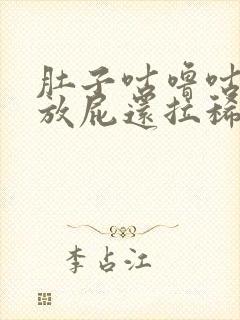 肚子咕噜咕
放屁还拉稀
李占江